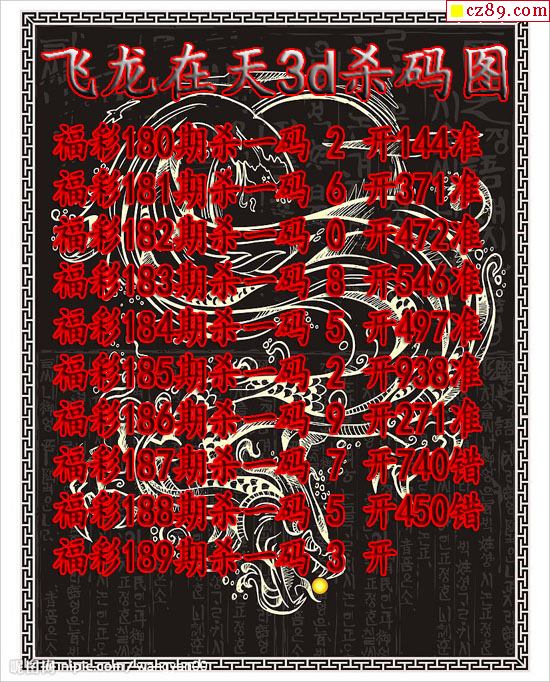 cz89.com
飞龙在天3d杀码图
福彩180期杀一码 2 开144准
福彩181期杀一码 6 开371准
福彩182期杀一码 0 开472准
福彩183期杀一码 8 开546准
福彩184期杀一码 5 开497准
福彩185期杀一码 2 开938准
福彩186期杀一码 9 开271准
福彩187期杀一码 7 开740错
福彩188期杀一码 5 开450错
福彩189期杀一码 3 开